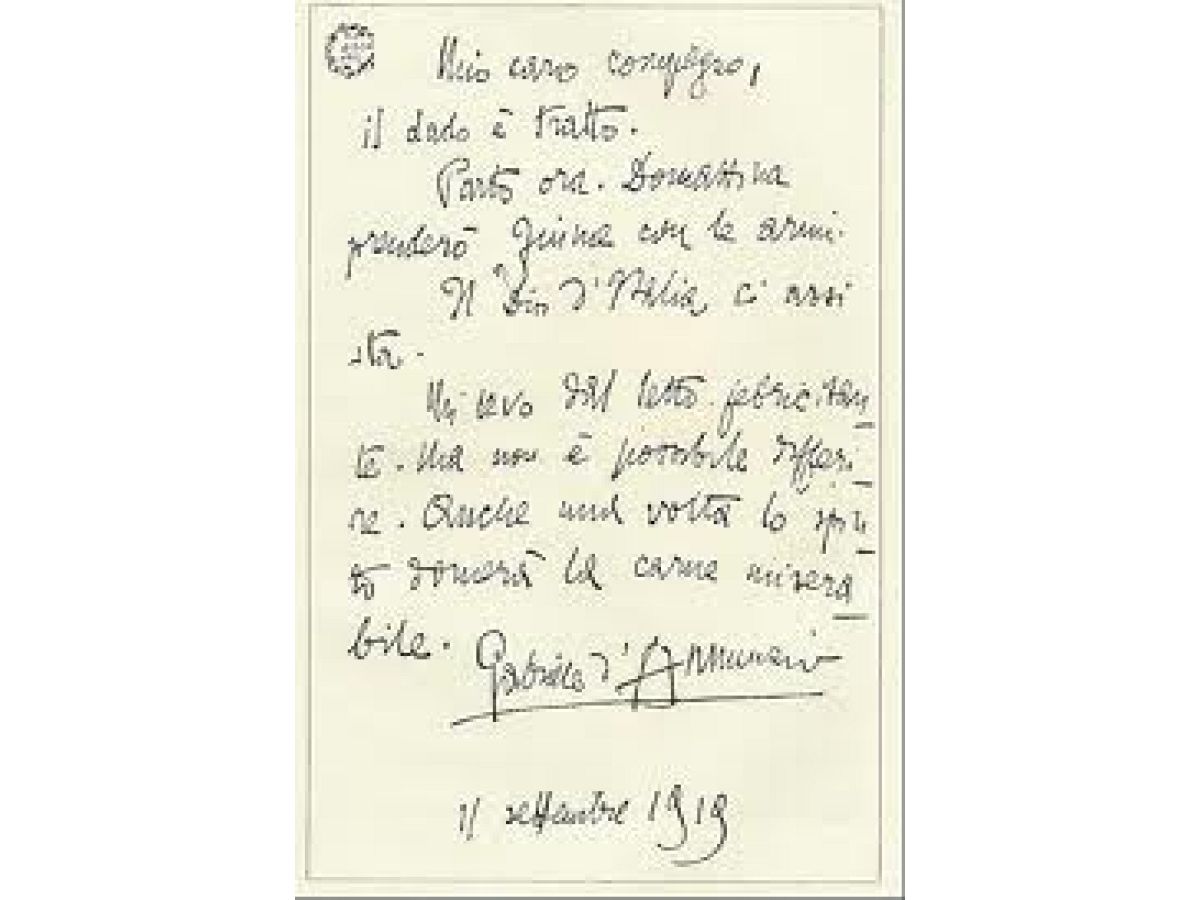 Mio caro compagno,
il dado è tratto.
Parto ora. Domattina
prenderò Fiume con le armi.
Il Dio d'Italia ci assi
sta.
Mi levo dal letto febbricitan
te. Ma non è possibile differi
re. Anche una volta lo spiri
to domerà la carne misera
bile.
Gabriele d'Annunzio
11 settembre 1919